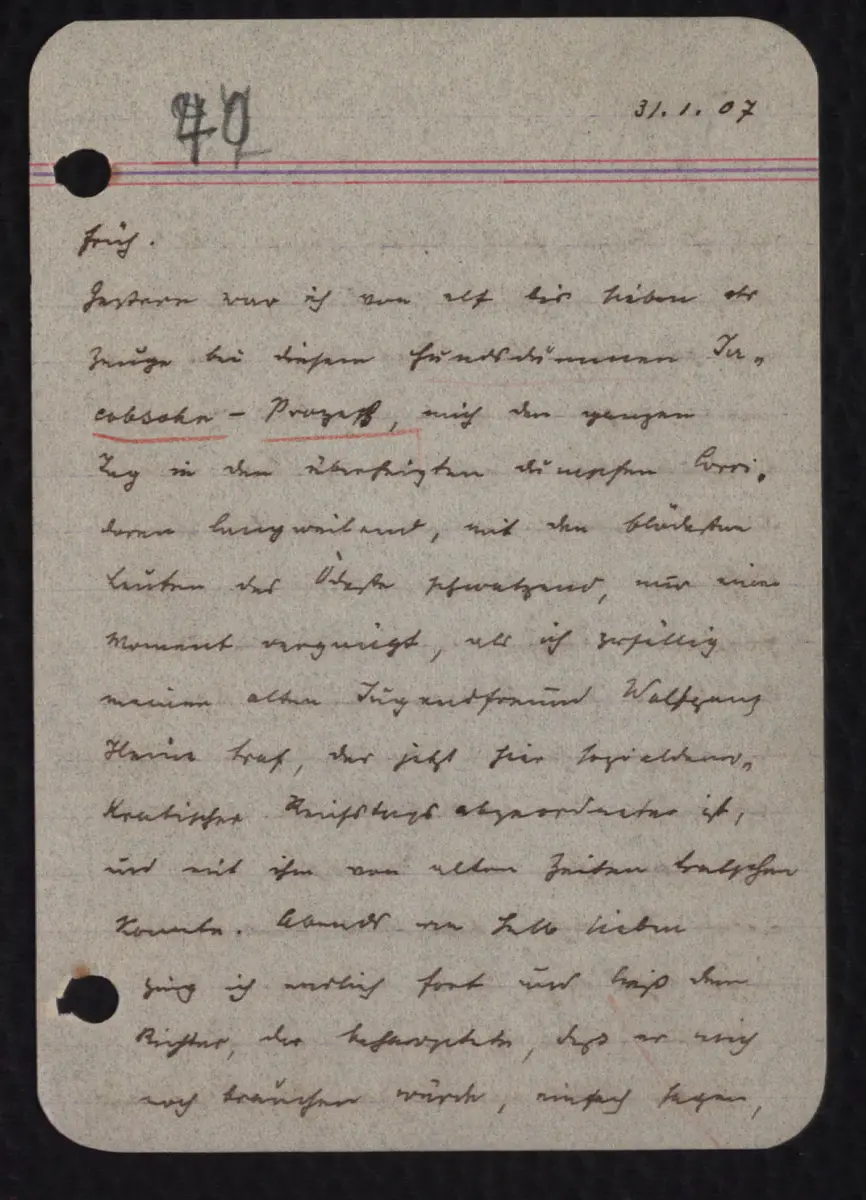 31. 1. 07
früh.
Gestern war ich von elf bis sieben als
Zeuge bei diesem hundsdummen Ja-
cobsohn - Prozeß, mich den ganzen
Tag in den überheizten dumpfen Corri-
doren langweilend, mit den blödesten
Leuten das Ödeste schwatzend, nur einen
Moment vergnügt, als ich zufällig
meinen alten Jugendfreund Wolfgang
Heine traf, der jetzt hier sozialdemo-
kratischer Reichstagsabgeordneter ist,
und mit ihm von alten Zeiten tratschen
konnte. Abends um halb sieben
ging ich endlich fort und ließ dem
Richter, der behauptete, daß er mich
noch brauchen würde, einfach sagen,